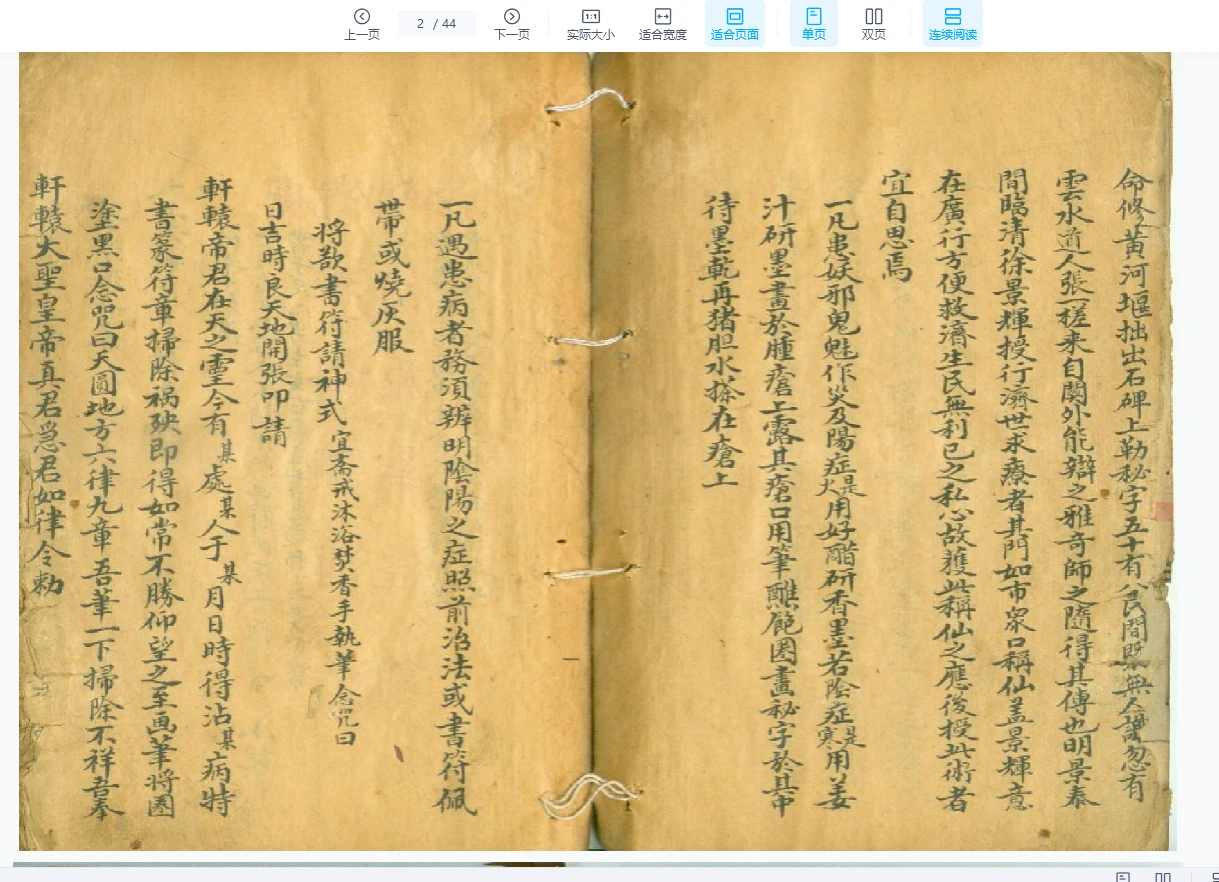 上一页
2 / 44
下一页
1:1
实际大小
适合宽度
适合页面
单页
双页
连续阅读
命修黃河堰拙出石碑上勒秘字五十有八民間既無人識忽有
雲水道人張一槎来自関外能辯之雅奇師之隨得其傳也明景泰
間臨清徐景輝授行濟世求療者其門如市衆口稱仙盖景輝意
在廣行方便救濟生民無利已之私心故獲此稱仙之應後授此術者
宜自思焉
一凡患妖邪鬼魅作災及陽症是火用好醋研香墨若陰症是寒用姜
汁研墨畫於腫瘡上露其瘡口用筆蘸範圏畫秘字於其中
待墨乾再猪胆水搽在瘡上
一凡遇患病者務須辨明陰陽之症照前治法或書符佩
帶或燒灰服
将欲書符請神式 宜齋戒沐浴焚香手執筆念咒曰
日吉時良天地開張叩請
軒轅帝君在天之靈今有某處某人于某月日時得沾某病特
書篆符章掃除禍殃即得如常不勝仰望之至画筆將圏
塗黑口念咒曰天圓地方六律九章吾筆一下掃除不祥吾奉
軒轅大聖皇帝真君急君如律令勅